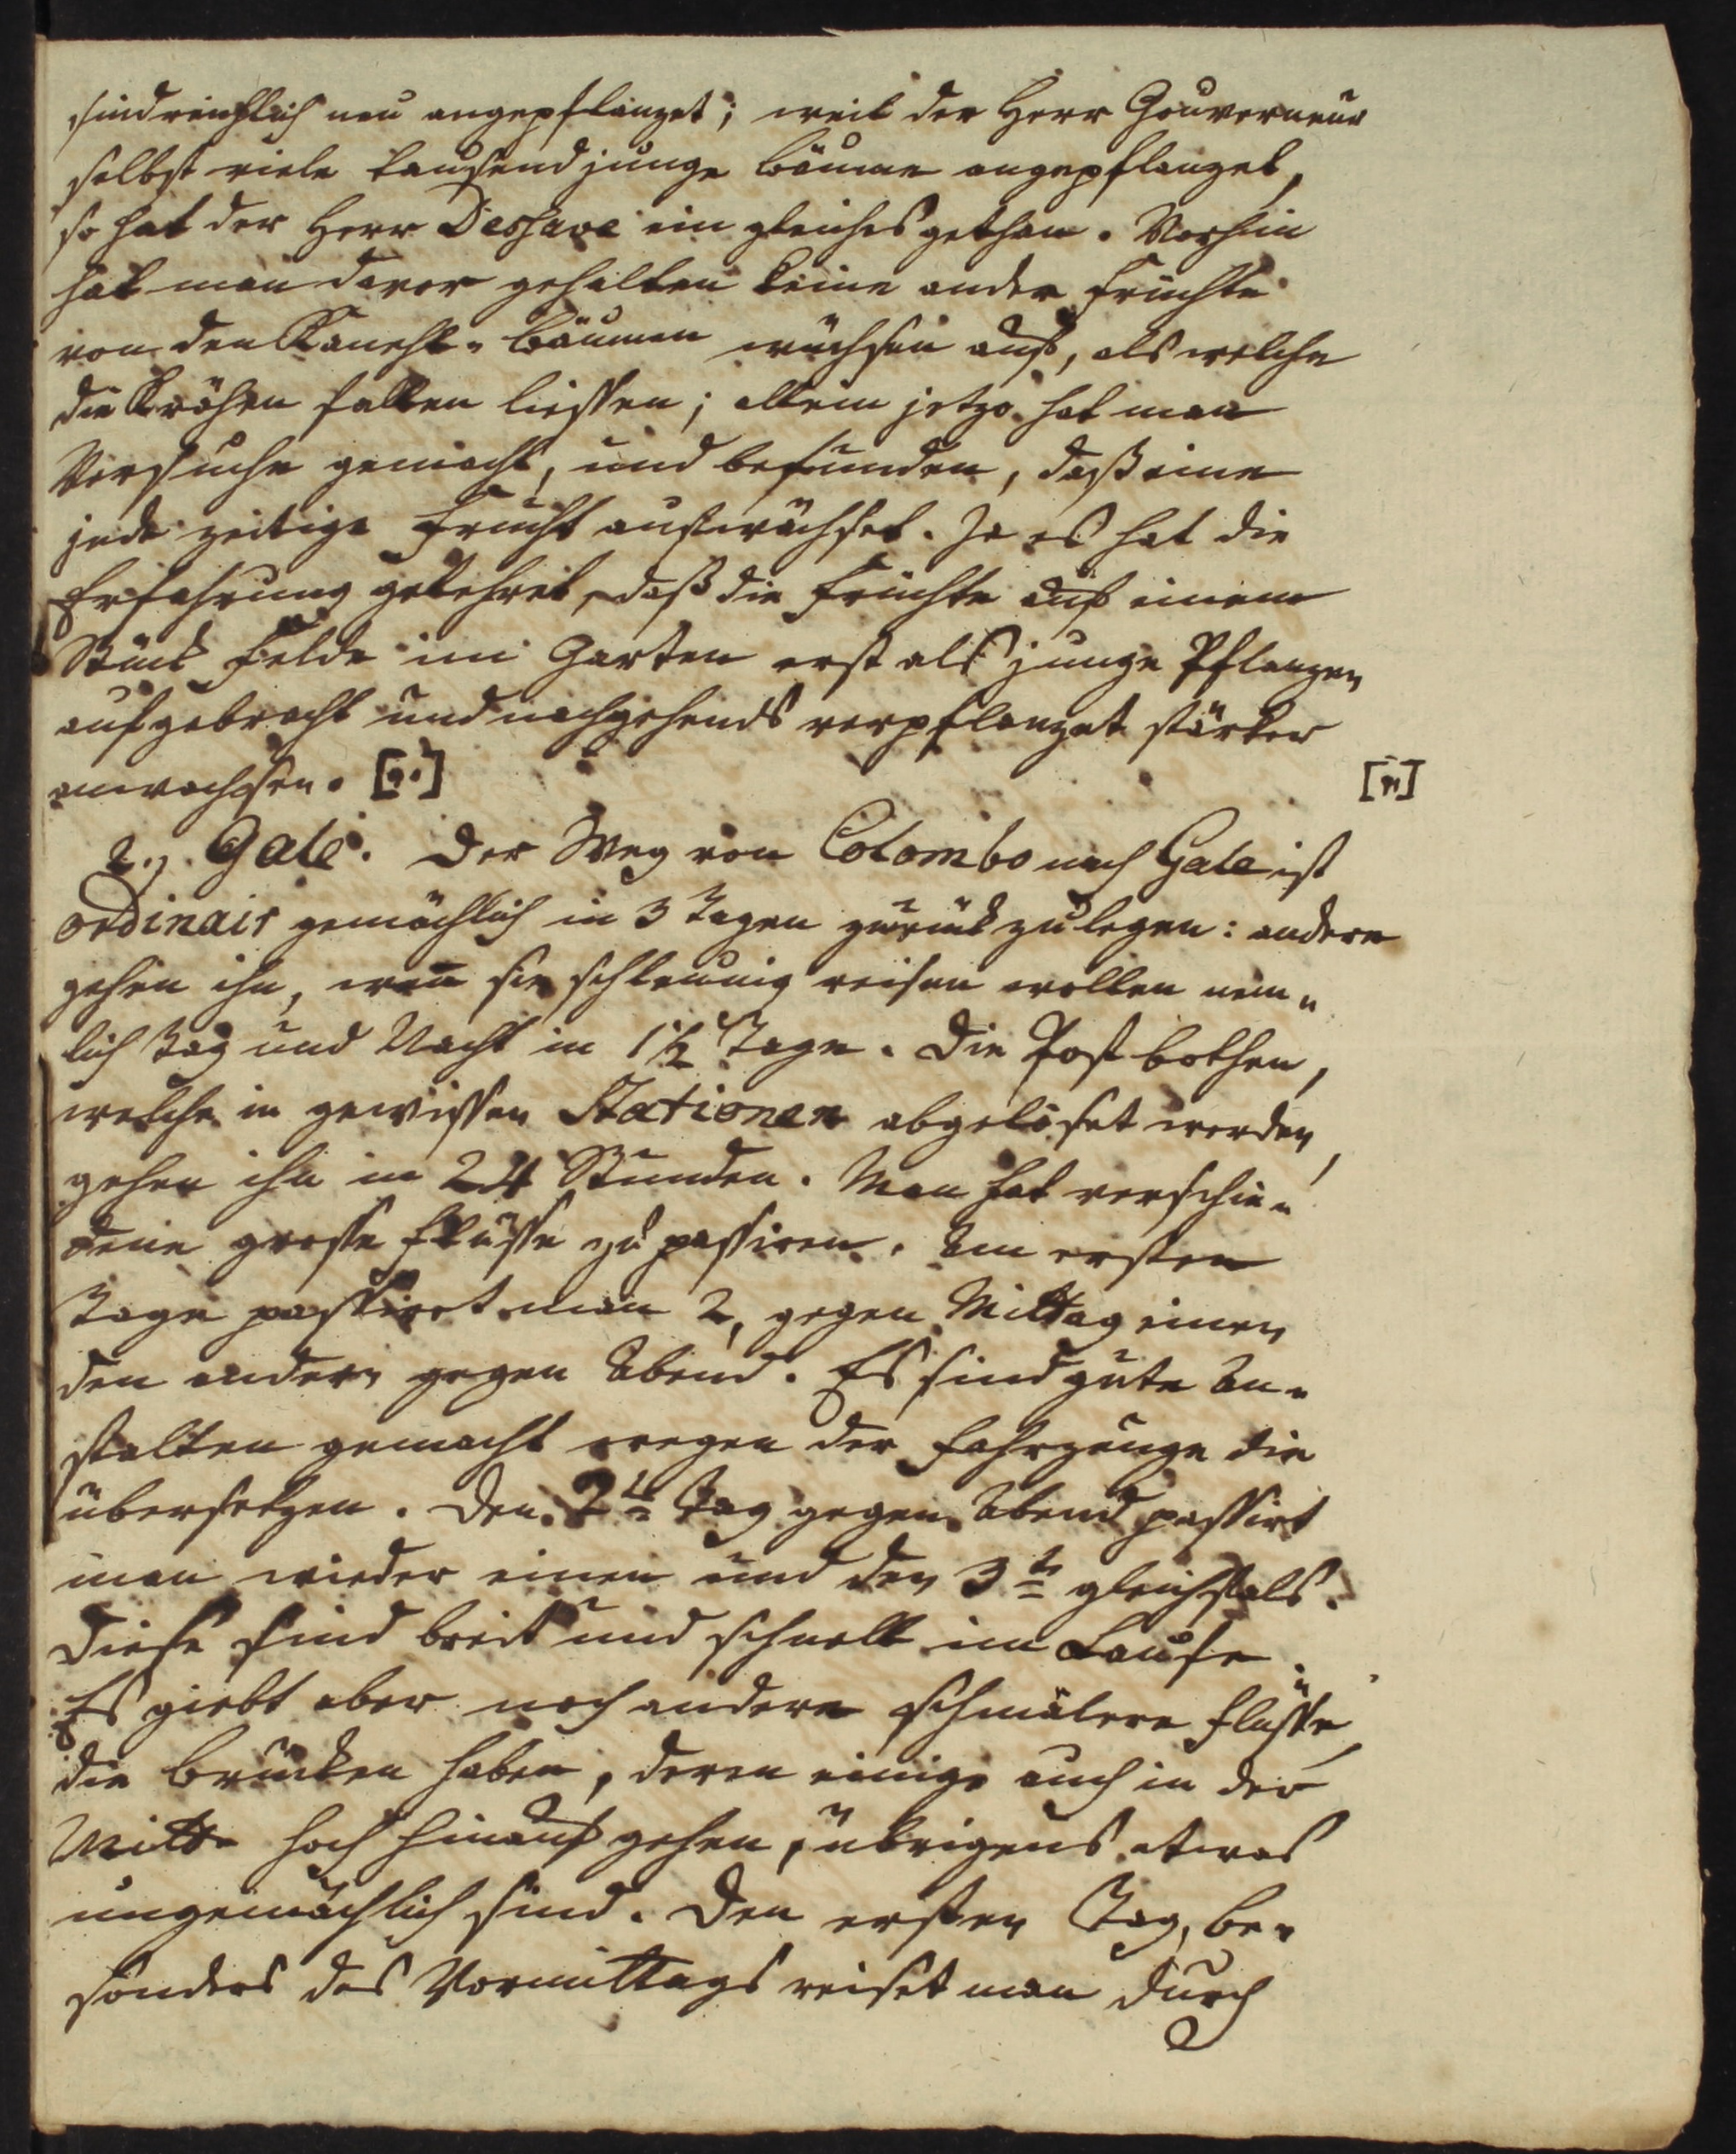 sind reichlich neu angepflanzet; weil der Herr Gouverneur
selbst viele tausend junge Bäume angepflanzet,
so hat der Herr Dessave ein gleiches gethan. Vorhin
hat man davor gehalten keine ander Früchte
von den Kanehl-Bäumen wüchsen auf, als welche
die Krähen fallen liessen; allein jetzo hat man
Versuche gemacht, und befunden, daß eine
jede zeitige Frucht aufwächset. Ja es hat die
Erfahrung gelehret, daß die Früchte auf einem
Stück Felde im Garten erst als junge Pflanzen
aufgebracht und nachgehends verpflanzet stärker
anwachsen. [n.] [n]
2.) Gale. Der Weg von Colombo nach Gale ist
ordinair gemächlich in 3 Tagen zurück zu legen: andere
gehen ihn, wen sie schleunig reisen wollen nem-
lich Tag und Nacht in 1½ Tage. Die Post bothen,
welche in gewissen Stationen abgelöset werden,
gehen ihn in 24 Stunden. Man hat verschie-
dene grosse Flüsse zu passiren. Am ersten
Tage passiret man 2, gegen Mittag einen
den andern gegen Abend. Es sind gute An-
stalten gemacht wegen der Fahrzeuge die
übersetzen. Den 2ten Tag gegen Abend passirt
man wieder einen und den 3ten gleichfals.
Diese sind breit und schnell im Laufe.
Es giebt aber noch andere schmälere Flüsse,
die Brücken haben, deren einige auch in der
Mitte hoch hinauf gehen, übrigens etwas
ungemächlich sind. Den ersten Tag, be-
sonders des Vormittags reiset man durch